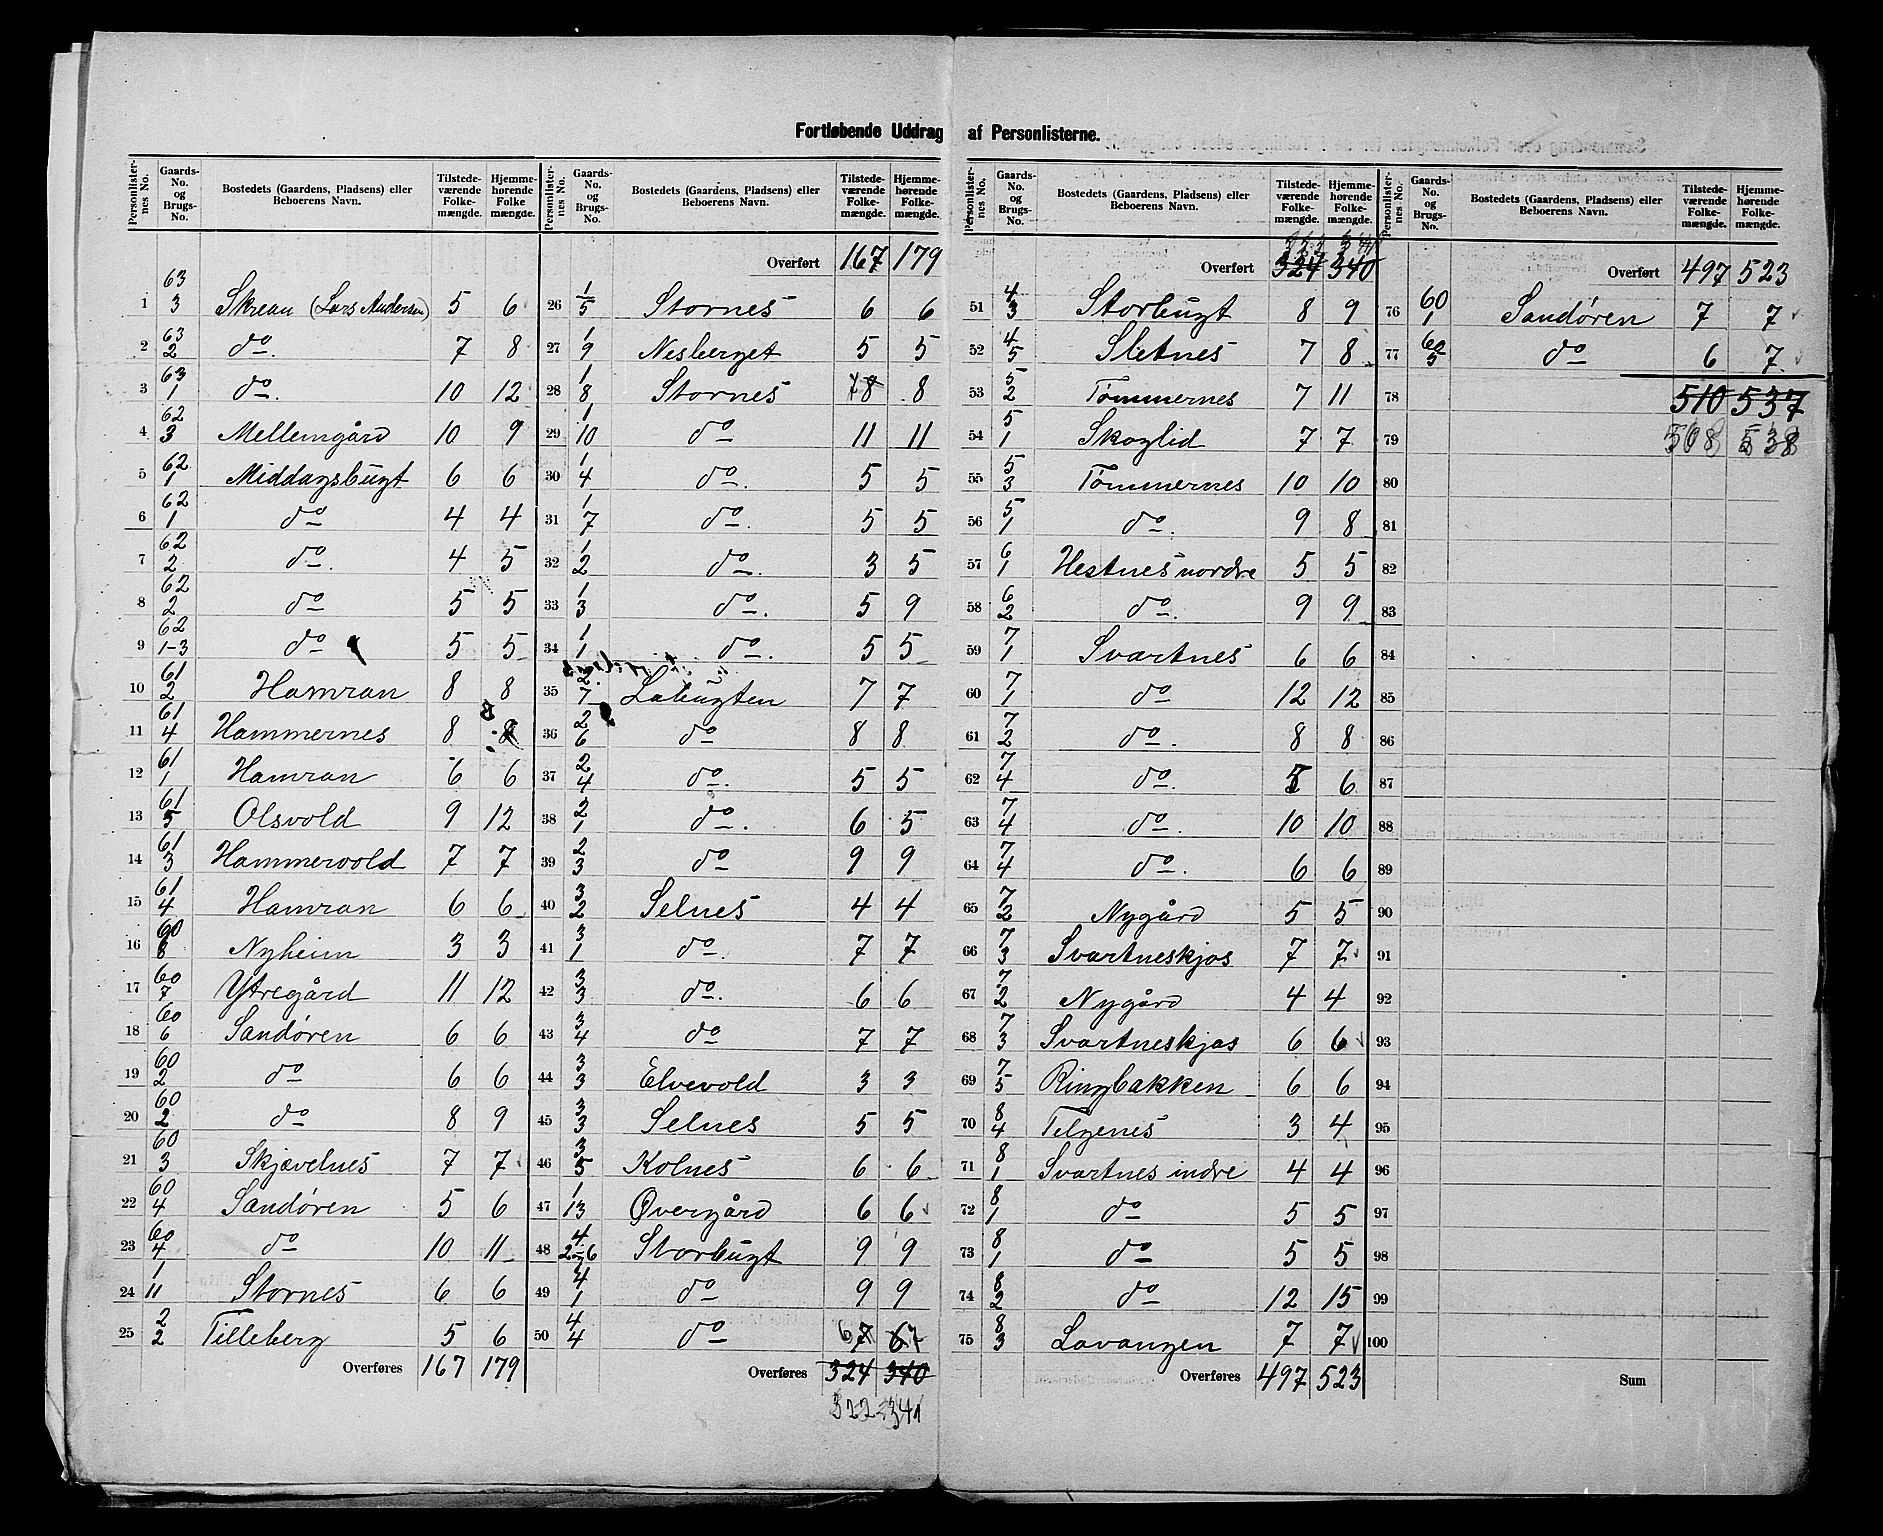 Fortløbende Uddrag af Personlisterne.
Personlisternes No. | Gaards-No. og Brugs-No. | Bostedets (Gaardens, Pladsens) eller Beboerens Navn. | Tilstedeværende Folkemængde. | Hjemmehørende Folkemængde.
1 | 63 3 | Skreau (Lars Andersen) | 5 | 6
2 | 63 2 | do. | 7 | 8
3 | 63 1 | do. | 10 | 12
4 | 62 3 | Mellemgård | 10 | 9
5 | 62 1 | Middagsbugt | 6 | 6
6 | 62 1 | do | 4 | 4
7 | 62 2 | do. | 4 | 5
8 | 62 2 | do | 5 | 5
9 | 62 1-3 | do | 5 | 5
10 | 61 2 | Hamran | 8 | 8
11 | 61 4 | Hammernes | 8 | 8
12 | 61 1 | Hamran | 6 | 6
13 | 61 5 | Olsvold | 9 | 12
14 | 61 3 | Hammervold | 7 | 7
15 | 61 4 | Hamran | 6 | 6
16 | 60 8 | Nyheim | 3 | 3
17 | 60 7 | Ytregård | 11 | 12
18 | 60 6 | Sandøren | 6 | 6
19 | 60 2 | do | 6 | 6
20 | 60 2 | do | 8 | 9
21 | 60 3 | Skjævelnes | 7 | 7
22 | 60 4 | Sandøren | 5 | 6
23 | 60 4 | do | 10 | 11
24 | 1 11 | Stornes | 6 | 6
25 | 2 2 | Tilleberg | 5 | 6
Overføres 167 179
Personlisternes No. | Gaards-No. og Brugs-No. | Bostedets (Gaardens, Pladsens) eller Beboerens Navn. | Tilstedeværende Folkemængde. | Hjemmehørende Folkemængde.
Overført 167 179
26 | 1 5 | Stornes | 6 | 6
27 | 1 9 | Nesberget | 5 | 5
28 | 1 8 | Stornes | 7 8 | 8
29 | 1 10 | do | 11 | 11
30 | 1 4 | do. | 5 | 5
31 | 1 7 | do. | 5 | 5
32 | 1 2 | do. | 3 | 5
33 | 1 3 | do. | 5 | 9
34 | 1 1 | do. | 5 | 5
35 | 2 7 | Labugten | 7 | 7
36 | 2 6 | do | 8 | 8
37 | 2 4 | do. | 5 | 5
38 | 2 1 | do. | 6 | 5
39 | 2 3 | do | 9 | 9
40 | 3 2 | Selnes | 4 | 4
41 | 3 1 | do. | 7 | 7
42 | 3 3 | do. | 6 | 6
43 | 3 4 | do | 7 | 7
44 | 3 3 | Elvevold | 3 | 3
45 | 3 3 | Selnes | 5 | 5
46 | 3 5 | Kolnes | 6 | 6
47 | 1 13 | Øvergård | 6 | 6
48 | 4 2-6 | Storbugt | 9 | 9
49 | 4 1 | do | 9 | 9
50 | 4 4 | do | 6 7 | 6 7
Overføres 324 340
322 341
Personlisternes No. | Gaards-No. og Brugs-No. | Bostedets (Gaardens, Pladsens) eller Beboerens Navn. | Tilstedeværende Folkemængde. | Hjemmehørende Folkemængde.
322 341
Overført 324 340
51 | 4 3 | Storbugt | 8 | 9
52 | 4 5 | Sletnes | 7 | 8
53 | 5 2 | Tømmernes | 7 | 11
54 | 5 1 | Skoglid | 7 | 7
55 | 5 3 | Tømmernes | 10 | 10
56 | 5 1 | do. | 9 | 8
57 | 6 1 | Hestnes nordre | 5 | 5
58 | 6 2 | do. | 9 | 9
59 | 7 1 | Svartnes | 6 | 6
60 | 7 1 | do | 12 | 12
61 | 7 2 | do. | 8 | 8
62 | 7 4 | do. | 5 | 6
63 | 7 4 | do. | 10 | 10
64 | 7 4 | do. | 6 | 6
65 | 7 2 | Nygård | 5 | 5
66 | 7 3 | Svartneskjos | 7 | 7
67 | 7 2 | Nygård | 4 | 4
68 | 7 3 | Svartneskjos | 6 | 6
69 | 7 5 | Ringbakken | 6 | 6
70 | 8 4 | Telgenes | 3 | 4
71 | 8 1 | Svartnes indre | 4 | 4
72 | 8 1 | do | 5 | 5
73 | 8 1 | do | 5 | 5
74 | 8 2 | do | 12 | 15
75 | 8 3 | Lavangen | 7 | 7
Overføres 497 523
Personlisternes No. | Gaards-No. og Brugs-No. | Bostedets (Gaardens, Pladsens) eller Beboerens Navn. | Tilstedeværende Folkemængde. | Hjemmehørende Folkemængde.
Overført 497 523
76 | 60 1 | Sandøren | 7 | 7
77 | 60 5 | do | 6 | 7
78 510 537
79 508 538
80
81
82
83
84
85
86
87
88
89
90
91
92
93
94
95
96
97
98
99
100
Sum